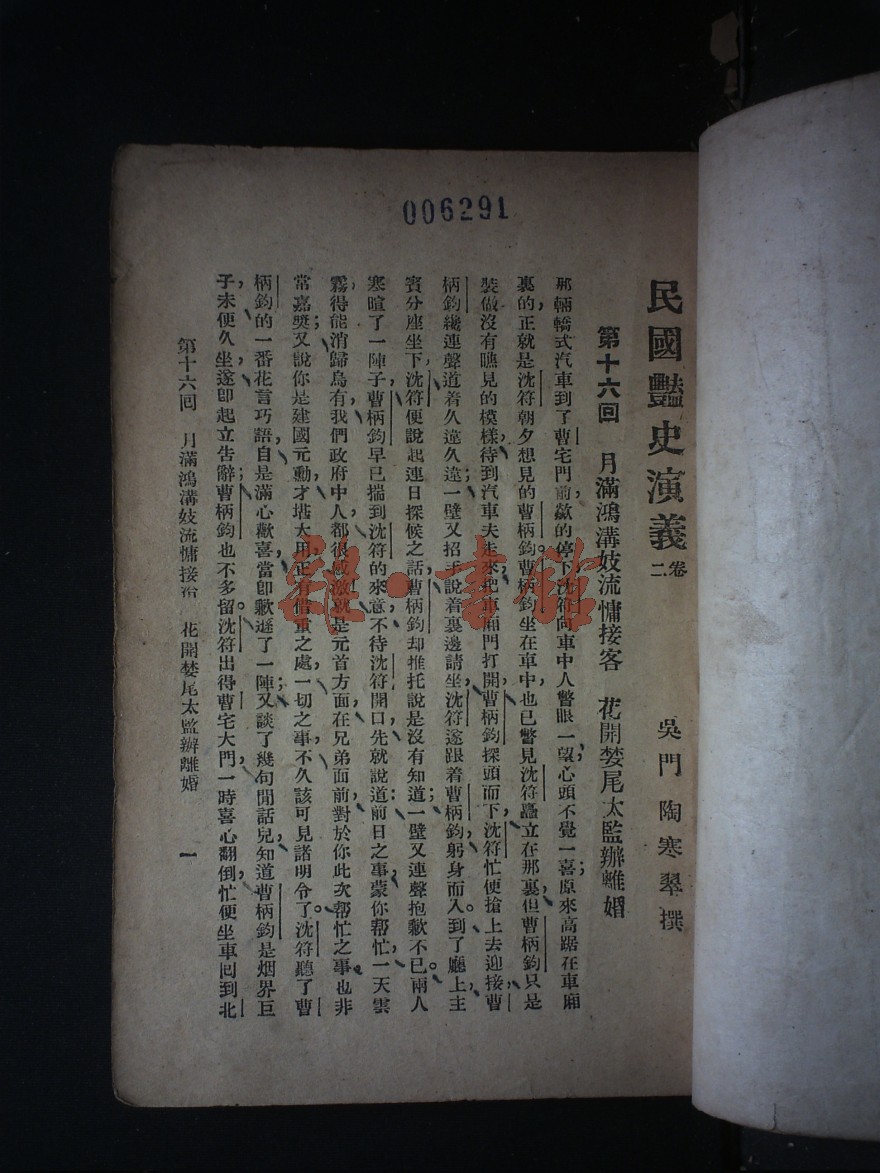 006291
民國豔史演義 卷二
吳門陶寒翠撰
第十六回 月滿鴻溝妓流慵接客 花開婪尾太監辦離婚
那輛轎式汽車到了曹宅門前，歘的停下，沈符向車中人瞥眼一望，心頭不覺一喜；原來高踞在車廂
裏的，正就是沈符朝夕想見的曹柄鈞。曹柄鈞坐在車中，也已瞥見沈符矗立在那裏，但曹柄鈞只是
裝做沒有瞧見的模樣，待到汽車夫走來，把車廂門打開，曹柄鈞探頭而下，沈符忙便搶上去迎接，曹
柄鈞纔連聲道着久違久違；一壁又招手說着裏邊請坐，沈符遂跟着曹柄鈞躬身而入。到了廳上，主
賓分座坐下，沈符便說起連日探候之話，曹柄鈞却推托說是沒有知道；一壁又連聲抱歉不已。兩人
寒暄了一陣子，曹柄鈞早已揣到沈符的來意，不待沈符開口，先就說道：前日之事，蒙你帮忙，一天雲
霧，得能消歸烏有，我們政府中人，都很感激，就是元首方面，在兄弟面前，對於你此次帮忙之事，也非
常嘉獎；又說你是建國元勳，才堪大用，正有借重之處，一切之事，不久該可見諸明令了。沈符聽了曹
柄鈞的一番花言巧語，自是滿心歡喜，當卽歉遜了一陣；又談了幾句閒話兒，知道曹柄鈞是烟界巨
子，未便久坐，遂卽起立告辭，曹柄鈞也不多留，沈符出得曹宅大門，一時喜心翻倒，忙便坐車回到北
第十六回 月滿鴻溝妓流慵接客 花開婪尾太監辦離婚 一
雜·書館